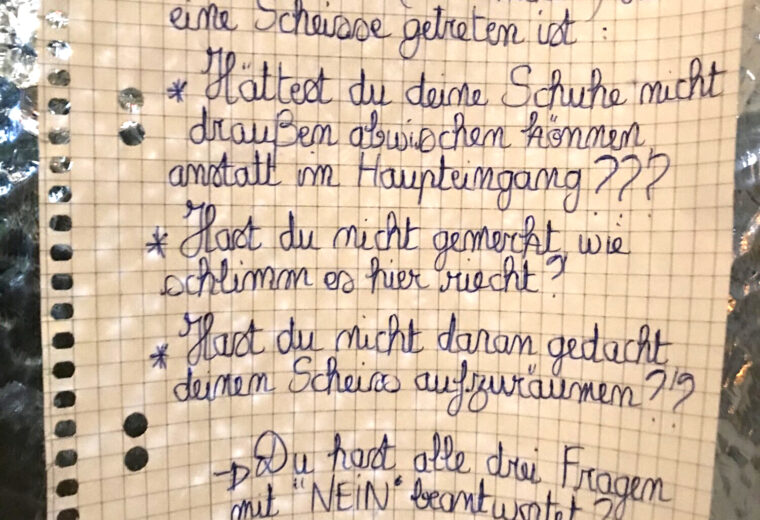 eine Scheisse getreten ist :
* Hättest du deine Schuhe nicht
draußen abwischen können,
anstatt im Haupteingang ???
* Hast du nicht gemerkt, wie
schlimm es hier riecht?
* Hast du nicht daran gedacht
deinen Scheiss aufzuräumen ?!?
→ Du hast alle drei Fragen
mit "NEiN" beantwortet ?